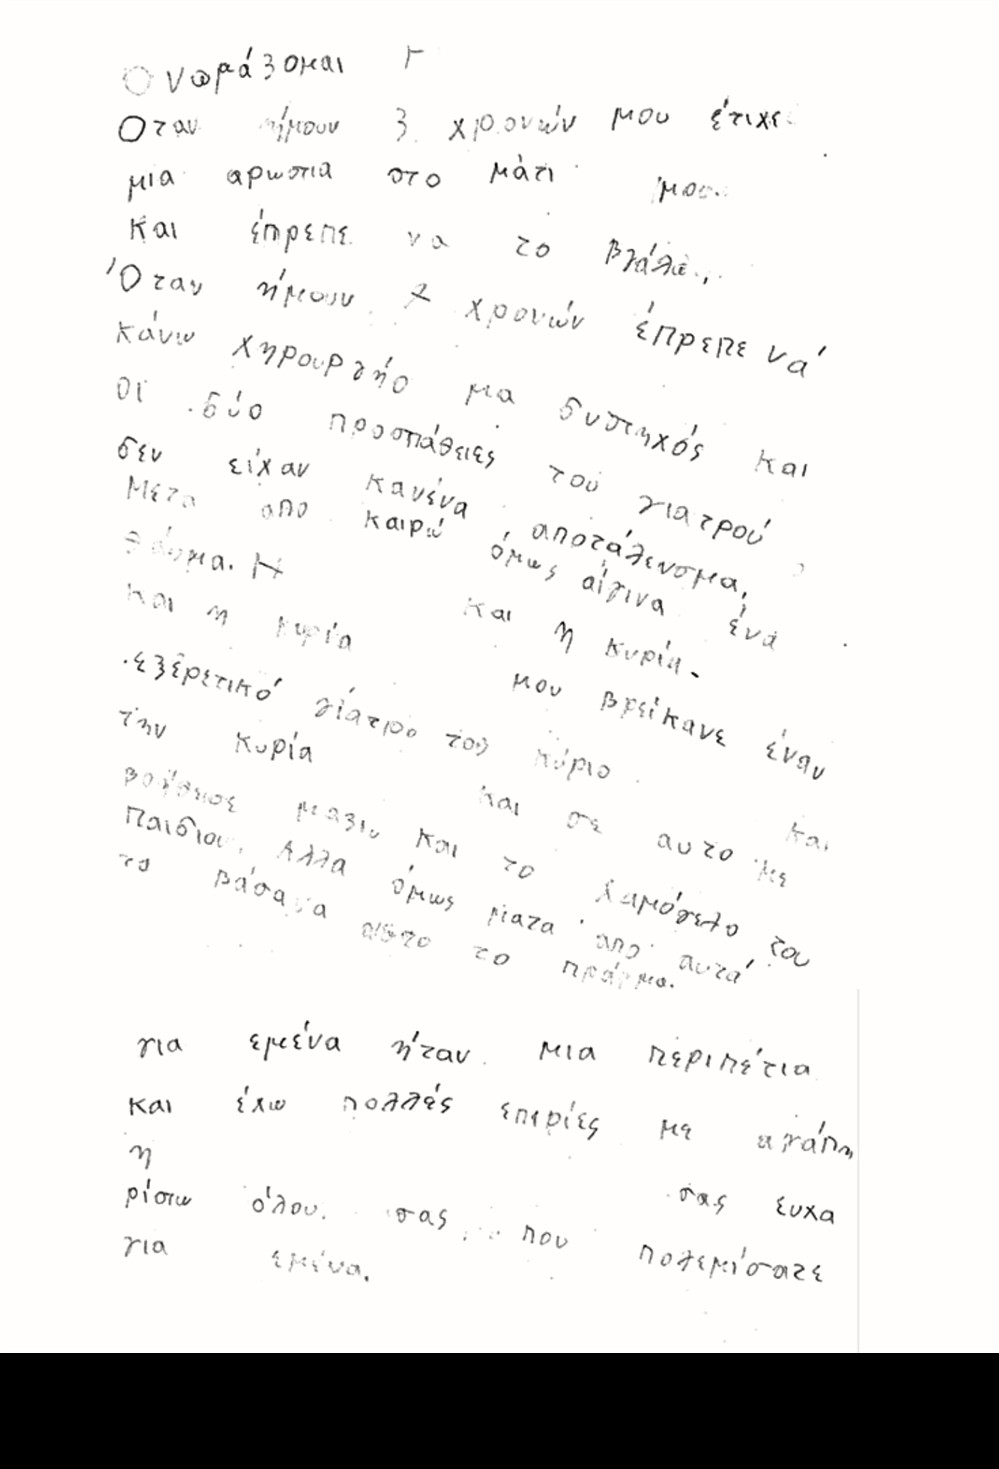 Ονωμάζομαι Γ
Οταν ήμουν 3 χρονών μου έτιχε
μια αρωστια στο μάτι μου
και έπρεπε να το βγάλω
Όταν ήμουν 7 χρονών έπρεπε νά
κάνω χηρουργήο μα δυστηχός και
οι δύο προσπάθειες του γιατρού
δεν είχαν κανένα αποτάλενσμα,
Μετα απο καιρώ όμως αίγινα ένα
θάυμα. Η και η κυρία
και η κυρία μου βρείκανε έναν
εξερετικό γίατρο τον κύριο και
την κυρία και σε αυτο με
βοήθησε μαζιυ και το χαμόγελο του
Παιδιου. Αλλα όμως ματα απο αυτά
τα βάσανα αυτο το πράγμα.
για εμένα ήταν μια περιπέτια
και έχω πολλές επιρίες με αγάπη
η σας ευχα
ρίστω όλου σας που πολεμίσατε
για εμένα.